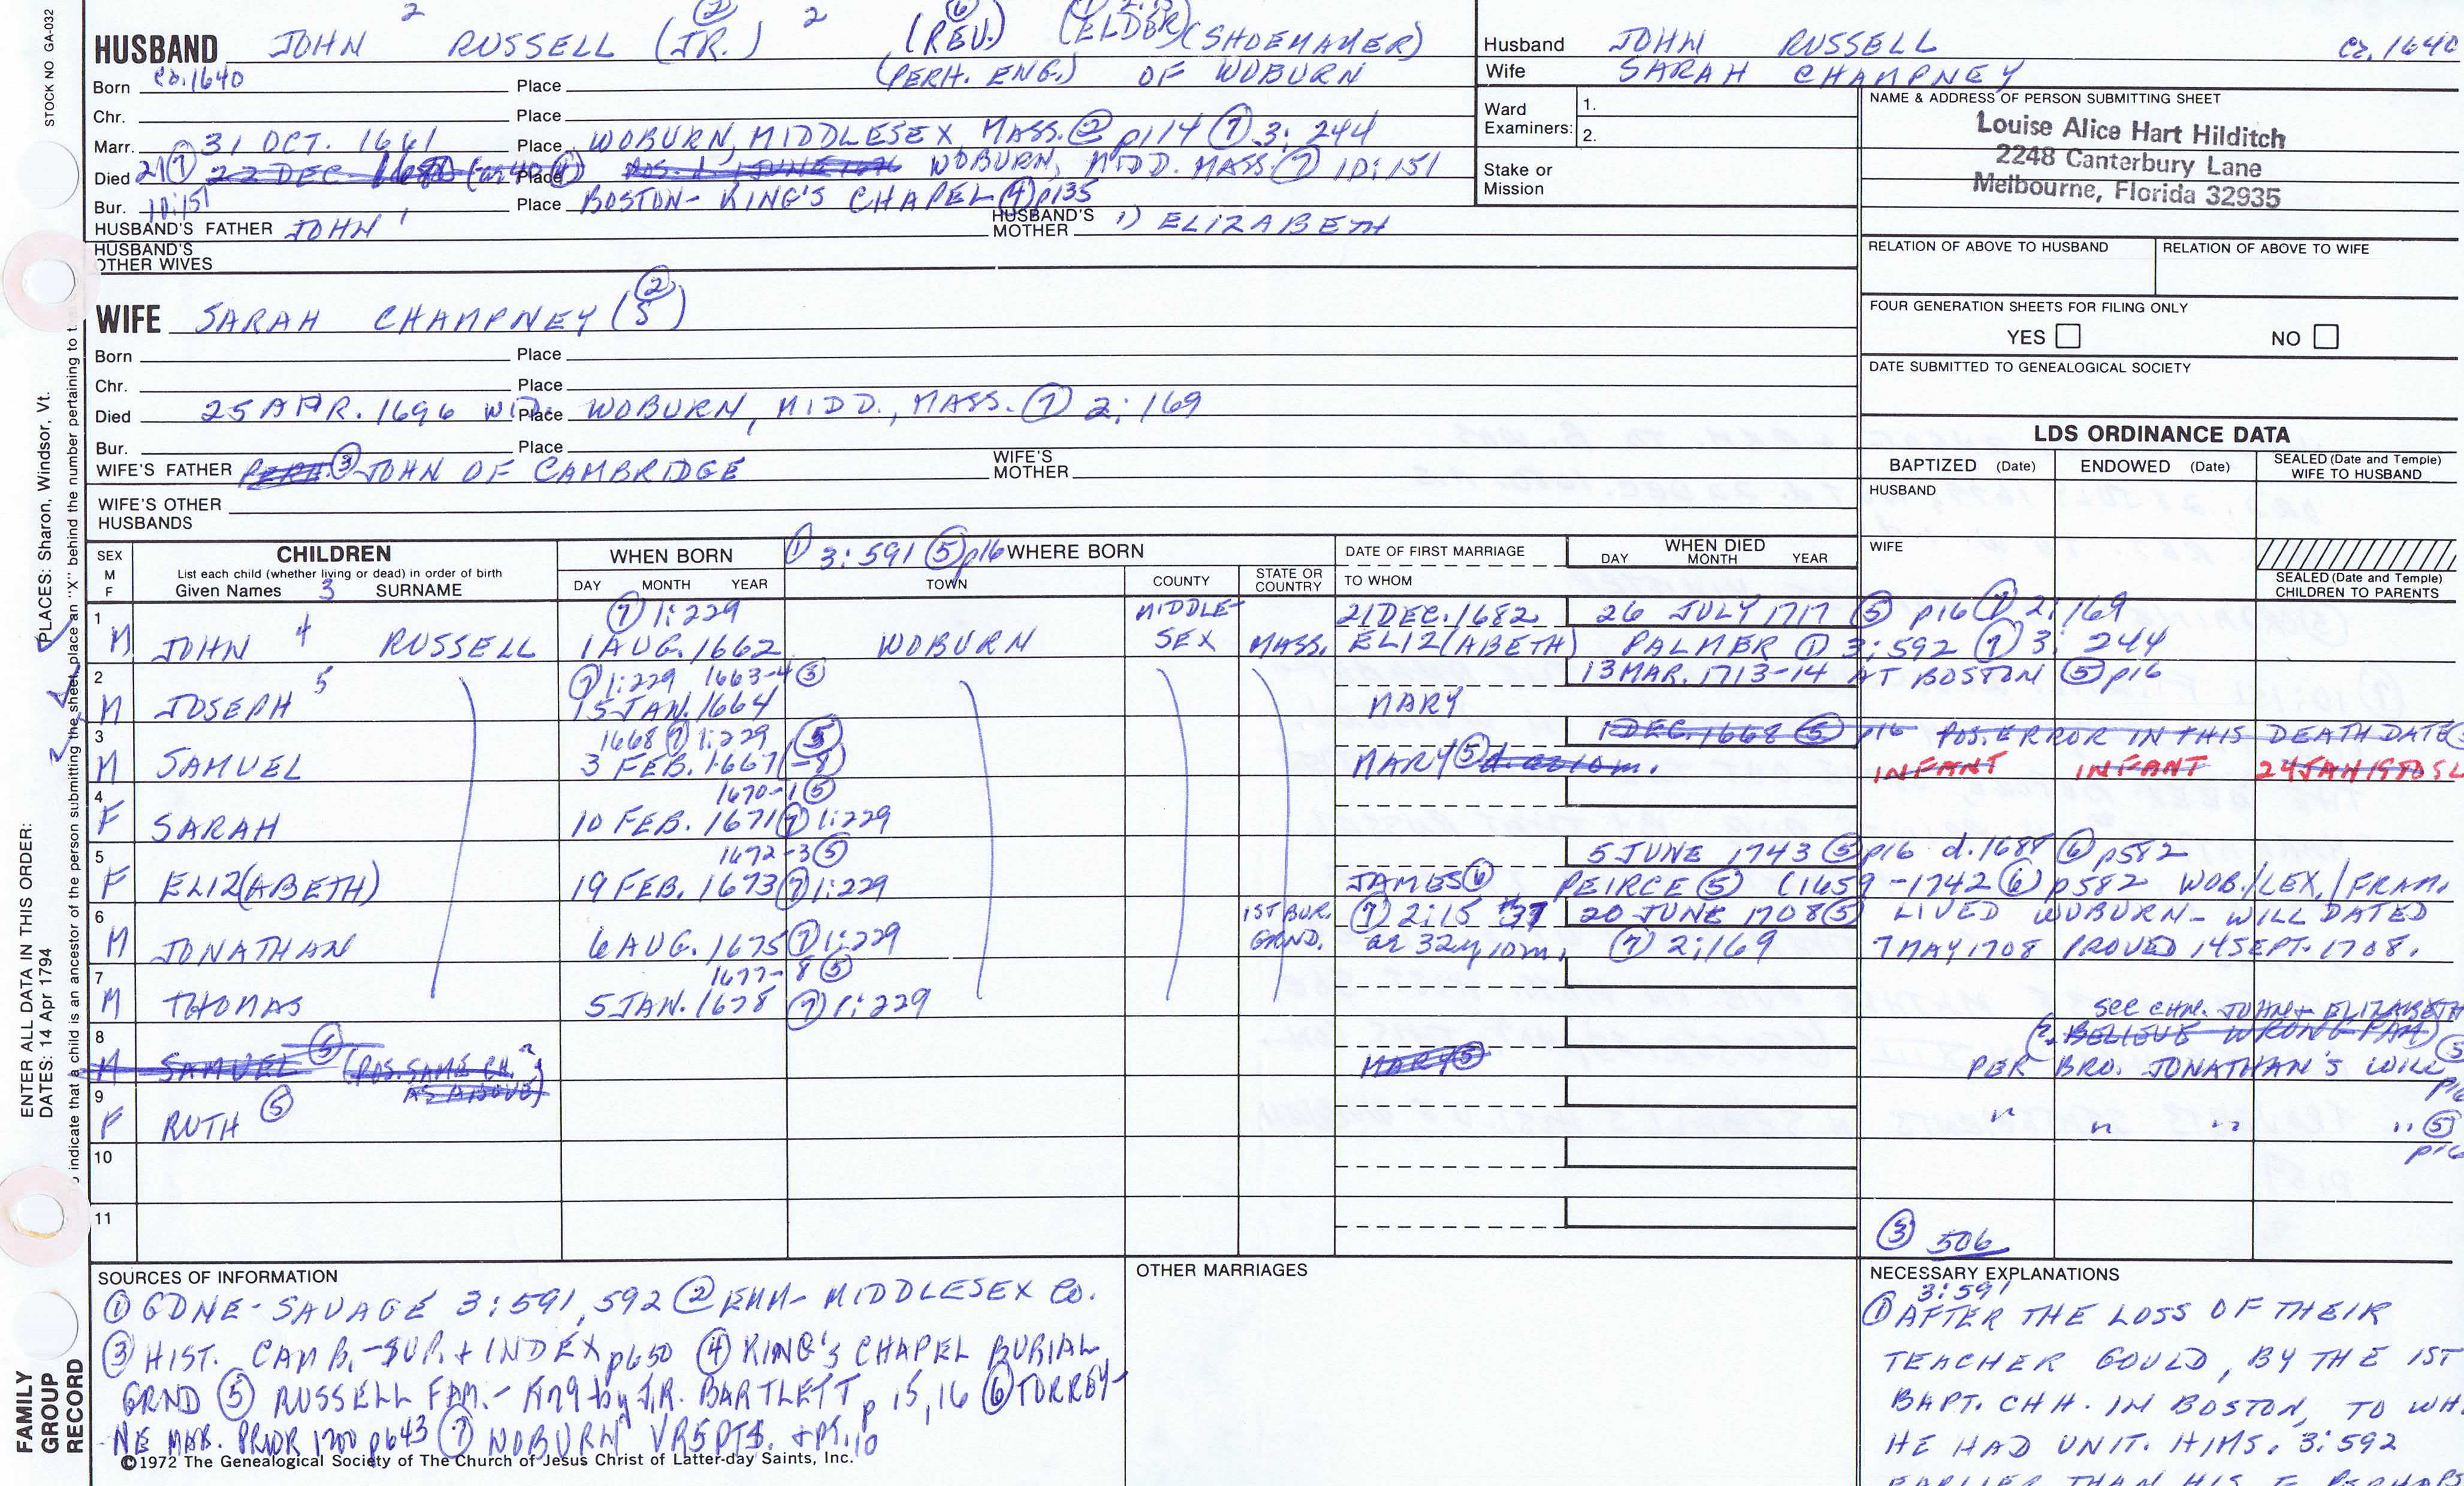 STOCK NO GA-032
2 (2) 2 (6)
HUSBAND JOHN RUSSELL (JR.) (REV.) (ELDER) (SHOEMAKER)
Born ca. 1640 Place (PERH. ENG.) OF WOBURN
Chr. Place
Marr. 31 OCT. 1661 Place WOBURN, MIDDLESEX, MASS. ② p114 ⑦ 3: 244
Died 21⑦ 22 DEC. 1680 Place POS. d. 1 JUNE 1676 WOBURN, MIDD. MASS. ⑦ 10:151
Bur. 10:151 Place BOSTON - KING'S CHAPEL ④ p135
HUSBAND'S FATHER JOHN 1 HUSBAND'S MOTHER 1) ELIZABETH
HUSBAND'S OTHER WIVES
WIFE SARAH CHAMPNEY (②S)
Born Place
Chr. Place
Died 25 APR. 1696 WID. Place WOBURN, MIDD., MASS. ⑦ 2:169
Bur. Place
WIFE'S FATHER PERH. ③ JOHN OF CAMBRIDGE WIFE'S MOTHER
WIFE'S OTHER HUSBANDS
Husband JOHN RUSSELL ca. 1640
Wife SARAH CHAMPNEY
Ward Examiners: 1. 2.
Stake or Mission
NAME & ADDRESS OF PERSON SUBMITTING SHEET
Louise Alice Hart Hilditch
2248 Canterbury Lane
Melbourne, Florida 32935
RELATION OF ABOVE TO HUSBAND RELATION OF ABOVE TO WIFE
FOUR GENERATION SHEETS FOR FILING ONLY
YES NO
DATE SUBMITTED TO GENEALOGICAL SOCIETY
LDS ORDINANCE DATA
BAPTIZED (Date) ENDOWED (Date) SEALED (Date and Temple) WIFE TO HUSBAND
HUSBAND
WIFE
SEALED (Date and Temple) CHILDREN TO PARENTS
SEX M F CHILDREN WHEN BORN ① 3:591 ⑤ p16 WHERE BORN DATE OF FIRST MARRIAGE WHEN DIED
List each child (whether living or dead) in order of birth
Given Names 3 SURNAME DAY MONTH YEAR TOWN COUNTY STATE OR COUNTRY TO WHOM DAY MONTH YEAR
1 ⑦ 1:229 MIDDLE- 21 DEC. 1682 26 JULY 1717 ⑤ p16 ⑦ 2:169
M JOHN 4 RUSSELL 1 AUG. 1662 WOBURN SEX MASS. ELIZ(ABETH) PALMER ① 3:592 ⑦ 3: 244
2 5 ⑦ 1:229 1663-4 ⑤ 13 MAR. 1713-14 AT BOSTON ⑤ p16
M JOSEPH 15 JAN. 1664 MARY
3 1668 ⑦ 1:229 ⑤ 1 DEC. 1668 ⑤ p16 POS. ERROR IN THIS DEATH DATE
M SAMUEL 3 FEB. 1667(-8) MARY ⑤ INFANT INFANT
4 1670-1 ⑤
F SARAH 10 FEB. 1671 ⑦ 1:229
5 1672-3 ⑤ 5 JUNE 1743 ⑤ p16 d. 1688 ⑥ p582
F ELIZ(ABETH) 19 FEB. 1673 ⑦ 1:229 JAMES ⑥ PEIRCE ⑤ (1659-1742 ⑥) p582 WOB./LEX./FRAM.
6 1ST BUR. ⑦ 2:15 20 JUNE 1708 ⑤ LIVED WOBURN - WILL DATED
M JONATHAN 6 AUG. 1675 ⑦ 1:229 GRND. ae 32y 10m. ⑦ 2:169 7 MAY 1708 PROVED 14 SEPT. 1708.
7 1677-8 ⑤
M THOMAS 5 JAN. 1678 ⑦ 1:229
SEE CHN. JOHN + ELIZABETH
8 (2. BELIEVE WRONG FAM)
M SAMUEL ⑤ (POS. SAME CH. AS ABOVE) MARY ⑤ PER BRO. JONATHAN'S WILL ⑤ p16
9
F RUTH ⑤ " " " " ⑤ p16
10
11
③ 506
SOURCES OF INFORMATION
① GDNE - SAVAGE 3:591, 592 ② EMM - MIDDLESEX Co.
③ HIST. CAMB. - SUP. + INDEX p650 ④ KING'S CHAPEL BURIAL
GRND ⑤ RUSSELL FAM. - by J.R. BARTLETT p 15, 16 ⑥ TORREY -
NE MAR. PRIOR 1700 p643 ⑦ WOBURN VR 5 PTS. + PT. 10
©1972 The Genealogical Society of The Church of Jesus Christ of Latter-day Saints, Inc.
OTHER MARRIAGES
NECESSARY EXPLANATIONS
3:591
① AFTER THE LOSS OF THEIR
TEACHER GOULD, BY THE 1ST
BAPT. CHH. IN BOSTON, TO WH.
HE HAD UNIT. HIMS. 3:592
EARLIER THAN HIS F. PERHAPS
ENTER ALL DATA IN THIS ORDER:
DATES: 14 Apr 1794 PLACES: Sharon, Windsor, Vt.
indicate that a child is an ancestor of the person submitting the sheet, place an "X" behind the number pertaining to
FAMILY GROUP RECORD